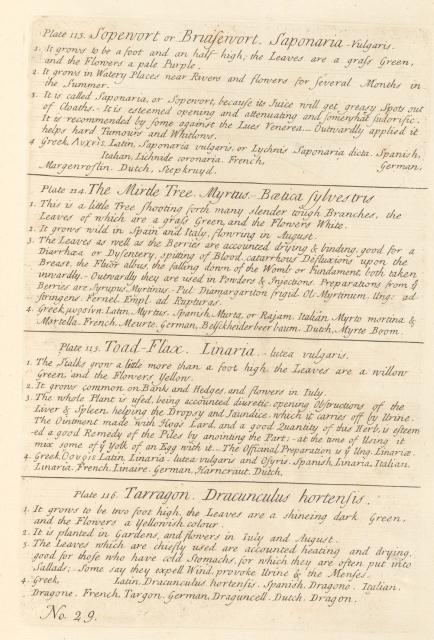 Plate 113. Sopewort or Bruisewort. Saponaria - Vulgaris.
1. It grows to be a foot and an half high; the Leaves are a graſs Green,
and the Flowers a pale Purple.
2. It grows in Watery Places near Rivers and flowers for ſeveral Months in
the Summer.
3. It is called Saponaria, or Sopewort, becauſe its Juice will get greaſy Spots out
of Cloaths. It is eſteemed opening and attenuating and ſomewhat ſudorific.
It is recommended by ſome againſt the Lues Venerea... Outwardly applied it
helps hard Tumours and Whitlows.
4 Greek, Latin, Saponaria vulgaris, or Lychnis Saponaria dicta. Spanish,
Italian, Lichnide coronaria. French, German,
Margenroſlin. Dutch, Seepkruyd.
Plate 114. The Mirtle Tree. Myrtus. Bætica ſylvestris
1. This is a little Tree ſhooting forth many slender tough Branches, the
Leaves of which are a graſs Green, and the Flowers White.
2. It grows wild in Spain and Italy, flowring in August.
3. The Leaves as well as the Berries are accounted drying & binding, good for a
Diarrhæa or Dyſentery, ſpitting of Blood, catarrhous Defluxions upon the
Breast, the Fluor albus, the falling down of the Womb or Fundament, both taken
inwardly. - Outwardly they are used in Powders & Injections. Preparations from ÿ
Berries are Syrupus Myrtinus. Pul. Diamargariton frigid. Ol. Myrtinum. Ung: ad-
ſtringens. Fernel. Empl. ad Rupturas.
4. Greek, Latin, Myrtus. Spanish, Murta, or Rajam. Italian, Myrto mortina &
Mortella. French, Meurte. German, Belſchheider beer baum. Dutch, Myrte Boom.
Plate 115. Toad-Flax. Linaria. - lutea vulgaris.
1. The Stalks grow a little more than a foot high, the Leaves are a willow
Green, and the Flowers Yellow.
2. It grows common on Banks and Hedges, and flowers in July.
3. The whole Plant is uſed, being accounted diuretic, opening Obſtructions of the
Liver & Spleen, helping the Dropſy and Jaundice, which it carries off by Urine.
The Ointment made with Hogs Lard, and a good Quantity of this Herb, is eſteem
-ed a good Remedy of the Piles by anointing the Part; - at the time of Using it
mix some of ÿ Yolk of an Egg with it. - The Officinal Preparation is ÿ Ung. Linariæ.
4. Greek, Latin, Linaria - lutea vulgaris and Oſyris. Spanish, Linaria. Italian,
Linaria. French, Linaire. German, Harncraut. Dutch,
Plate 116. Tarragon. Dracunculus hortenſis.
1. It grows to be two foot high, the Leaves are a shineing dark Green,
and the Flowers a Yellowish colour.
2. It is planted in Gardens, and flowers in July and August.
3. The Leaves which are chiefly used are accounted heating and drying,
good for thoſe who have cold Stomachs, for which they are often put into
Sallads; - Some say they expell Wind, provoke Urine & the Menſes.
4. Greek, Latin, Dracunculus hortenſis. Spanish, Dragone. Italian,
Dragone. French, Targon. German, Draguncell. Dutch, Dragon.
No. 29.